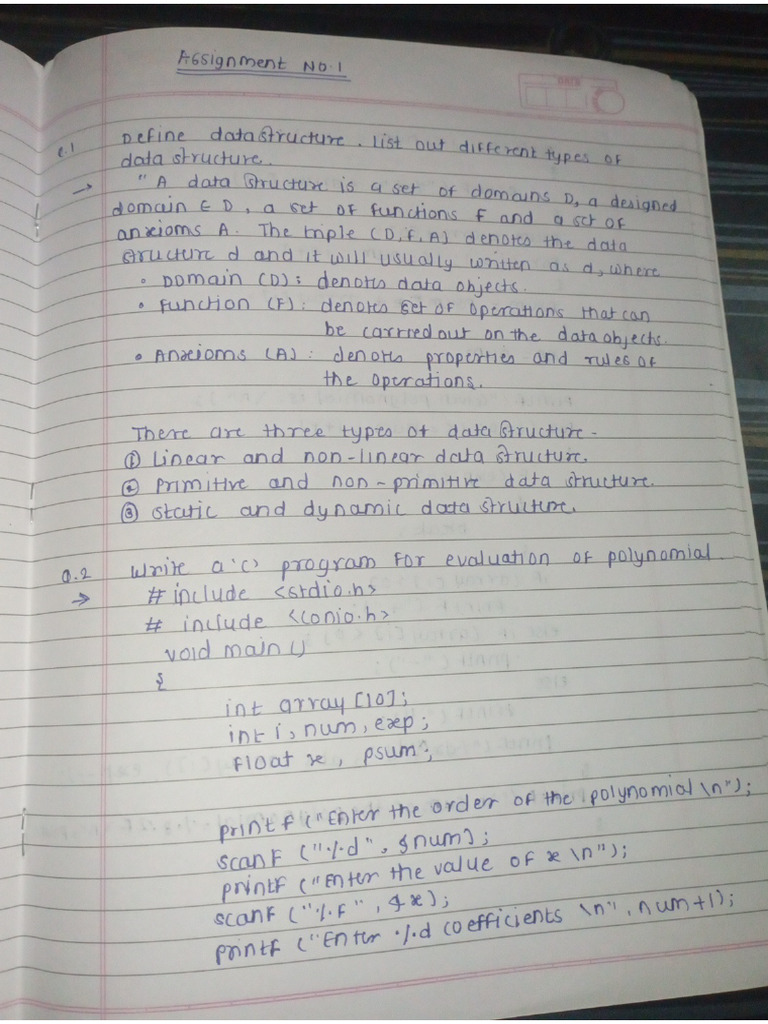 Assignment No.1
DATE
Q.1 Define datastructure. List out different types of
data structure.
→ " A data structure is a set of domains D, a designed
domain ∈ D, a set of functions F and a set of
anxioms A. The triple (D, F, A) denotes the data
structure d and it will usually wriiten as d, where
• Domain (D): denotes data objects.
• Function (F): denotes set of operations that can
be carried out on the data objects.
• Anxioms (A): denotes properties and rules of
the operations.
There are three types of data structure -
① Linear and non-linear data structure.
② Primitive and non-primitive data structure.
③ static and dynamic data structure.
Q.2 Write a 'c' program for evaluation of polynomial.
→ # include <stdio.h>
# include <conio.h>
void main()
{
int array [10];
int i, num, exp;
float x, psum;
printf ("Enter the order of the polynomial \n");
scanf ("%d", &num);
printf ("Enter the value of x \n");
scanf ("%f", &x);
printf ("Enter %d coefficients \n", num+1);